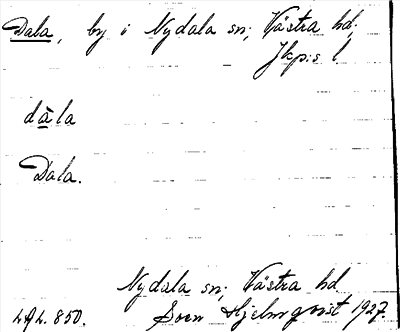 Dala, by i Nydala sn; Västra hd;
Jkp:s l
dàla
Dala.
Nydala sn; Västra hd
LAL. 850. Sven Hjelmqvist 1927.